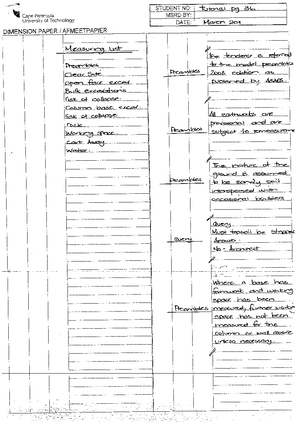 Cape Peninsula
University of Technology
STUDENT NO: Tutorial pg 86.
MSRD BY:
DATE: March 201
DIMENSION PAPER / AFMEETPAPIER
Measuring List
Preambles
Clear Site
Open face excav.
Bulk excavations
Risk of collapse
Column base excav.
Risk of collapse
Rock.
Working space.
Cart Away
Water.
Preambles
The tenderer is referred
to the model preambles
2008 edition as
published by ASAQS.
Preambles
All earthworks are
provisional and are
subject to remeasurement
Preambles
The nature of the
ground is assumed
to be sandy soil
interspersed with
occasional boulders
Query
Query
Must topsoil be stripped
Answer
No - Architect
Preambles
Where a base has
formwork and working
space has been
measured, further working
space has not been
measured for the
column or wall above
unless necessary